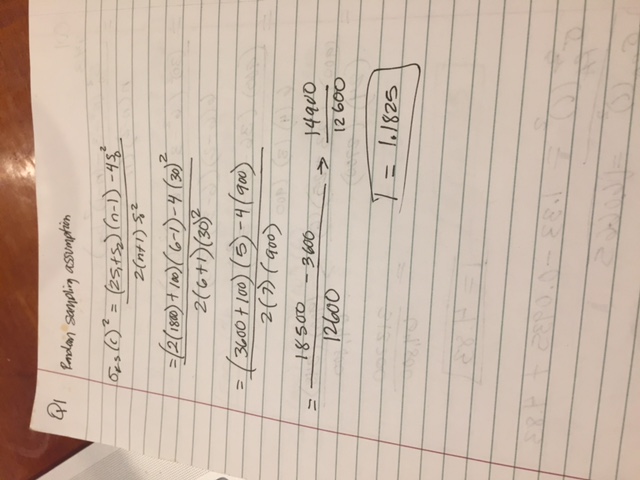 Q1
Random sampling assumption
σRS(c)² = (2S₁+S₂)(n-1) -4S₀²
2(n+1) S₀²
= (2(1800)+100)(6-1)-4(30)²
2(6+1)(30)²
= (3600+100)(5)-4(900)
2(7)(900)
= 18500 - 3600 → 14900
12600 12600
I = 1.1825